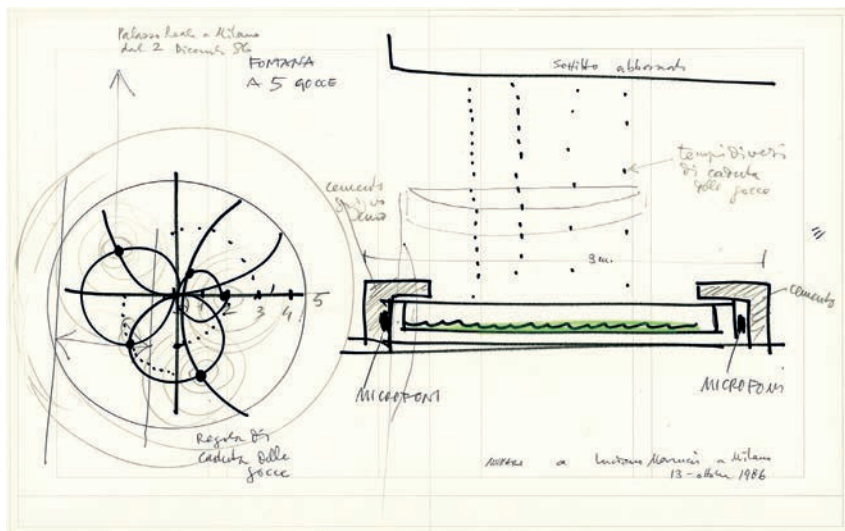 Palazzo Reale a Milano
dal 2 Dicembre 86
FONTANA
A 5 GOCCE
Soffitto abbassato
tempi diversi
di caduta
delle gocce
cemento
3 m.
1 2 3 4 5
cemento
MICROFONI
MICROFONI
Regola di
caduta delle
gocce
MUNARI a Luciano a Milano
13-ottobre 1986